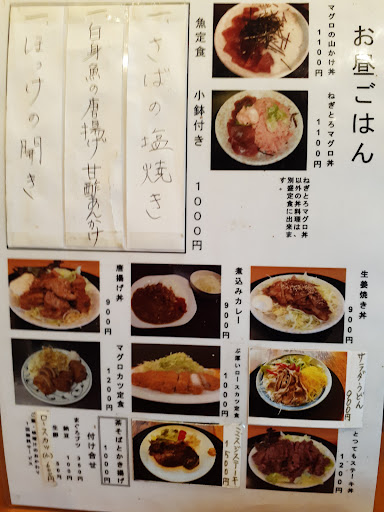 お昼ごはん
マグロの山かけ丼
1100円
ねぎとろマグロ丼
1100円
ねぎとろマグロ丼
以外の丼料理は、
別盛定食に出来ま
す。
魚定食
小鉢付き 1000円
一、さばの塩焼き
一、白身魚の唐揚げ甘酢あんかけ
一、ほっけの開き
生姜焼き丼
900円
煮込みカレー
900円
唐揚げ丼
900円
サラダうどん
900円
ぶ厚いロースカツ定食
1000円
マグロカツ定食
1200円
とってもステーキ丼
1200円
1500円
茶そばとかき揚げ
1000円
付け合せ
納豆